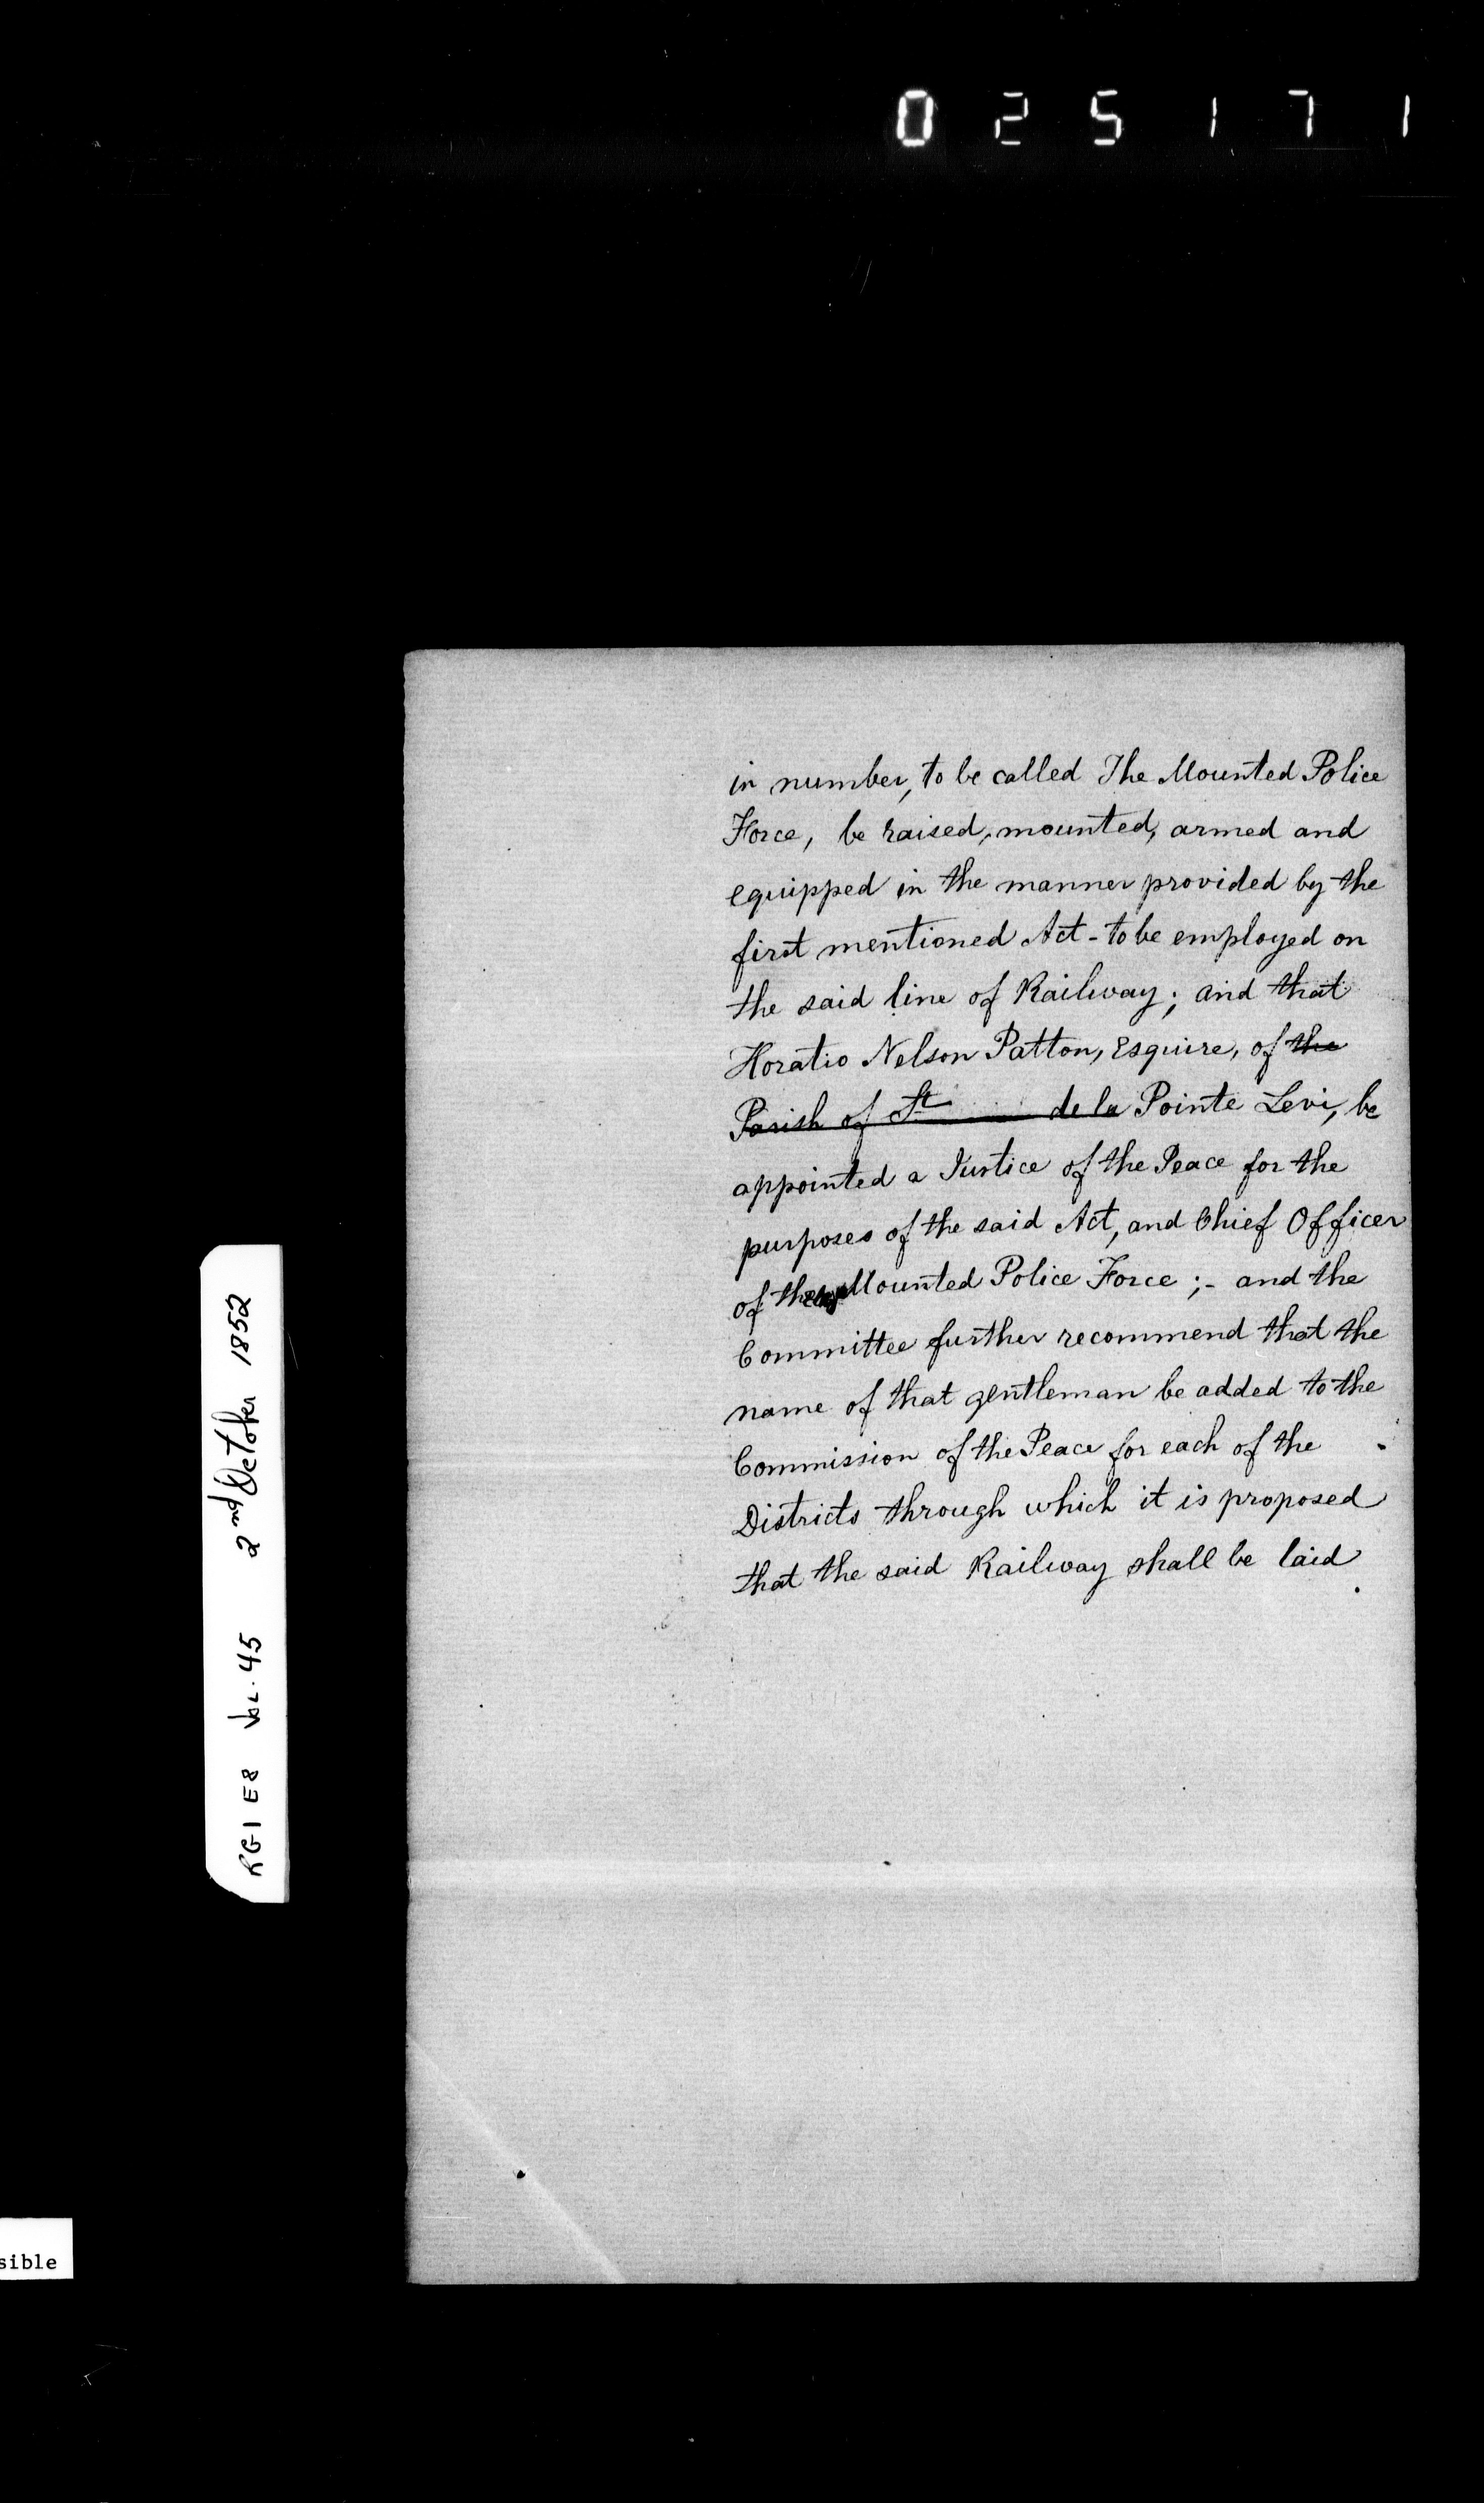 025171
in number, to be called The Mounted Police
Force, be raised, mounted, armed and
equipped in the manner provided by the
first mentioned Act - to be employed on
the said line of Railway; and that
Horatio Nelson Patton, Esquire, of the
Parish of St de la Pointe Levi, be
appointed a Justice of the Peace for the
purposes of the said Act, and Chief Officer
of the Mounted Police Force ;- and the
Committee further recommend that the
name of that gentleman be added to the
Commission of the Peace for each of the
Districts through which it is proposed
that the said Railway shall be laid
RG1 E8 VOL. 45 2nd October 1852
sible